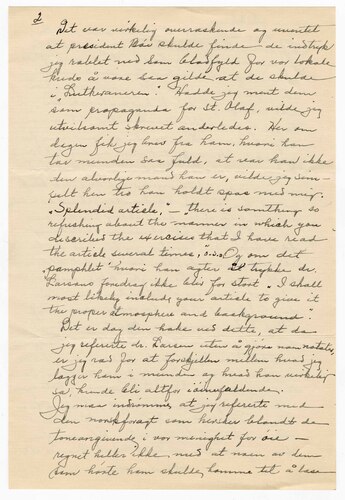 2
Det var virkelig overraskende og uventet
at president Bøe skulde finde de indtryk
jeg rablet ned som bladfyld for vor lokale
å vore saa gilde at de skulde
i "Lutheraneren". Hadde jeg ment dem
som propaganda for St. Olaf, vilde jeg
utvilsomt skrevet anderledes. Her om
dagen fik jeg brev fra ham, hvori han
tar munden saa fuld, at var han ikke
den alvorlige mand han er, vilde jeg
tro han holdt spas med mig.
"Splendid article," — "there is something so
refreshing about the manner in which you
described the exercises that I have read
the article several times, Og om det
"pamphlet" hvori han agter å trykke dr.
Larsens foredrag ikke blir for stort. "I shall
most likely include your article to give it
the proper atmosphere and background".
Det er dog den hake ved dette, at da
jeg refererte dr. Larsen uten å gjøre mange notater,
er jeg ræd for at forskjellen mellem hvad jeg
lægger ham i munden og hvad han virkelig
sa, kunde bli altfor iøinefaldende.
Jeg maa indrømme, at jeg refererte med
den norskforagt som hersker blandt de
toneangivende i vor menighet for øie —
regnet heller ikke med at noen av dem
som hørte ham skulde komme til å læse